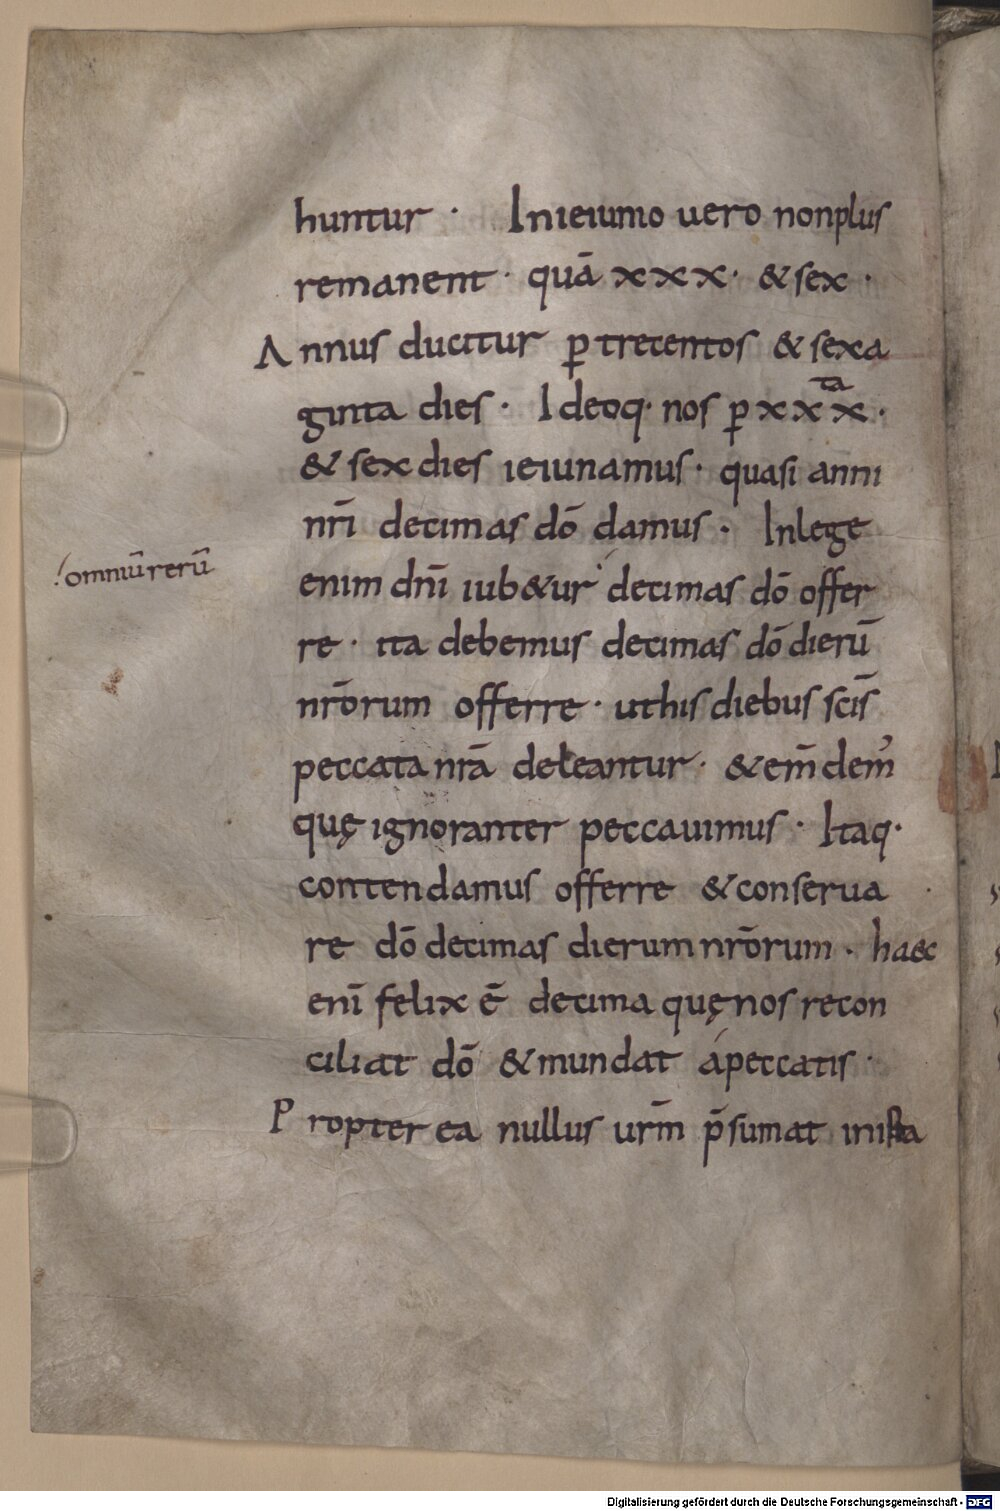 huntur · In ieiunio uero non plus
remanent · quā xxx · & sex ·
Annus ducitur ꝑ trecentos & sexa
ginta dies · Ideoq· nos ꝑ xxxᵗᵃ ·
& sex dies ieiunamus · quasi anni
nr̄i decimas dō damus · In lege
!omniū rerū
enim dn̄i iub&ur decimas dō offer
re · ita debemus decimas dō dierū
nr̄orum offerre · ut his diebus scīs
peccata nr̄a deleantur · & em̄dem᷒
quę ignoranter peccauimus · Itaq·
contendamus offerre & conserua
re dō decimas dierum nr̄orum · haec
enī felix ē decima quę nos recon
ciliat dō & mundat á peccatis ·
Propter ea nullus ur̄m p̄sumat in ista
Digitalisierung gefördert durch die Deutsche Forschungsgemeinschaft - DFG